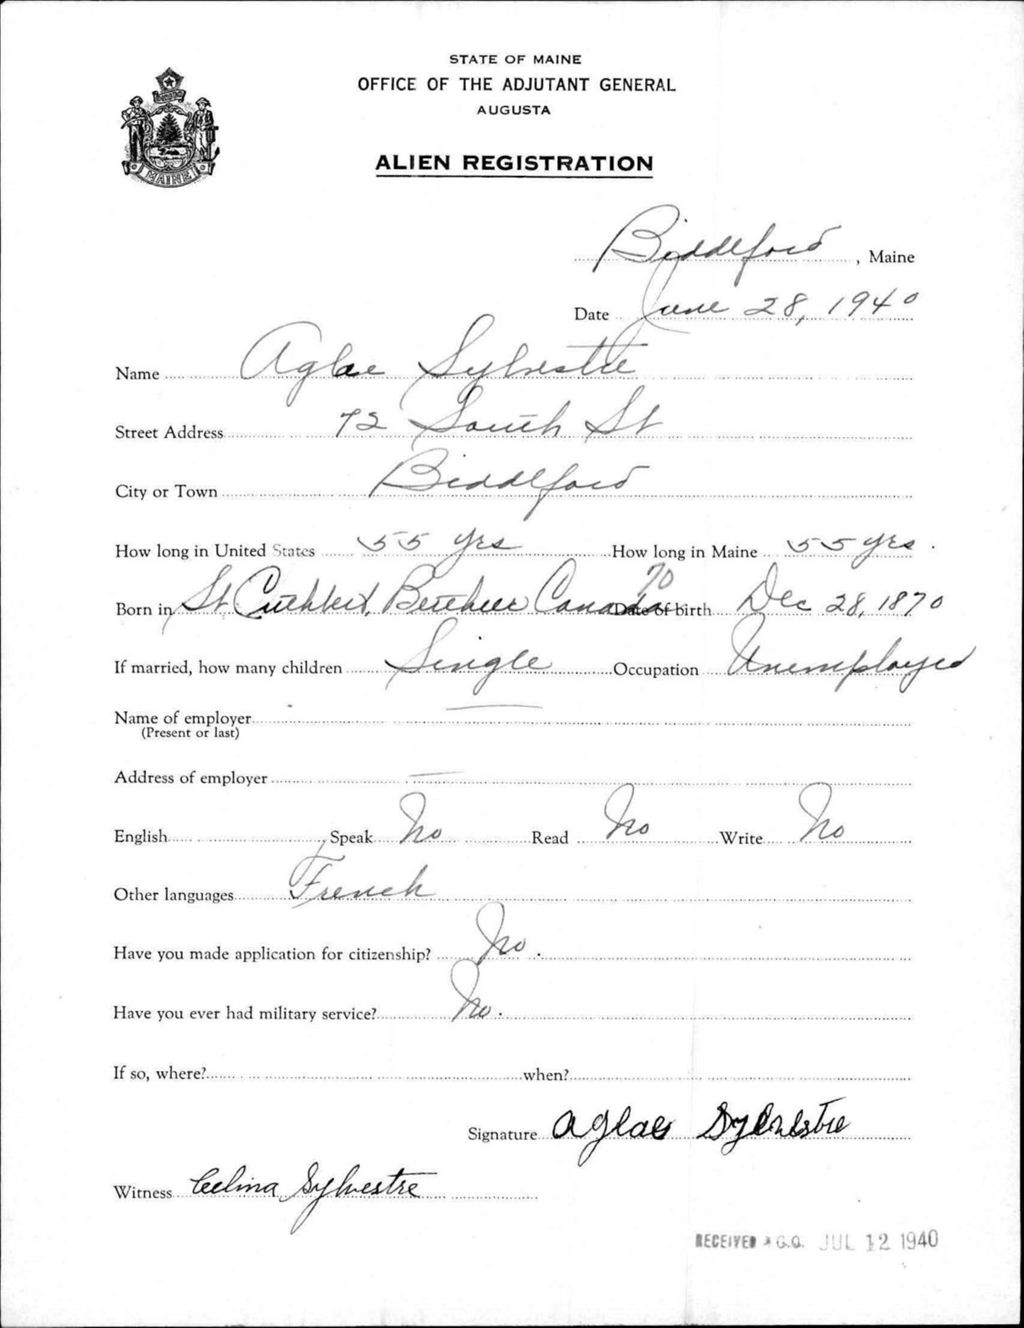 STATE OF MAINE
OFFICE OF THE ADJUTANT GENERAL
AUGUSTA
ALIEN REGISTRATION
MAINE
Biddeford, Maine
Date June 28, 1940
Name Aglae Sylvestre
Street Address 72 South St
City or Town Biddeford
How long in United States 55 yrs How long in Maine 55 yrs.
70
Born in St Cuthbert, Canada Date of birth Dec 28, 1870
If married, how many children Single Occupation Unemployed
Name of employer
(Present or last)
Address of employer
English Speak No Read No Write No
Other languages French
Have you made application for citizenship? No.
Have you ever had military service? No.
If so, where? when?
Signature Aglae Sylvestre
Witness Celina Sylvestre
RECEIVED A.G.O. JUL 12 1940